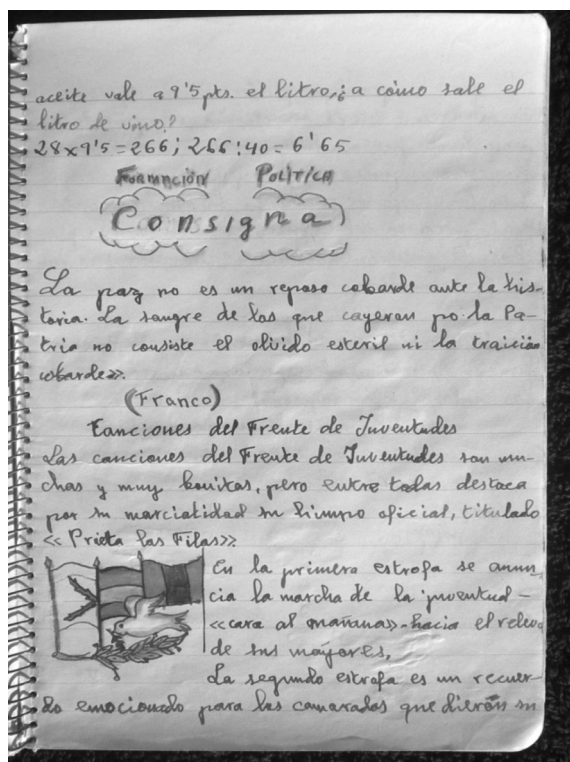 aceite vale a 9'5 pts. el litro, ¿a cómo sale el
litro de vino?
28x9'5=266; 266:40=6'65
Formación Política
Consigna
La paz no es un reposo cobarde ante la his-
toria. La sangre de los que cayeron po la Pa-
tria no consiste el olvido esteril ni la traición
cobarde».
(Franco)
Canciones del Frente de Juventudes
Las canciones del Frente de Juventudes son mu-
chas y muy bonitas, pero entre todas destaca
por su marcialidad su himno oficial, titulado
«Prieta las Filas»
En la primera estrofa se anun-
cia la marcha de la juventud-
«cara al mañana»-hacia el relevo
de sus mayores,
La segundo estrofa es un recuer-
do emocionado para los camarados que dieron su